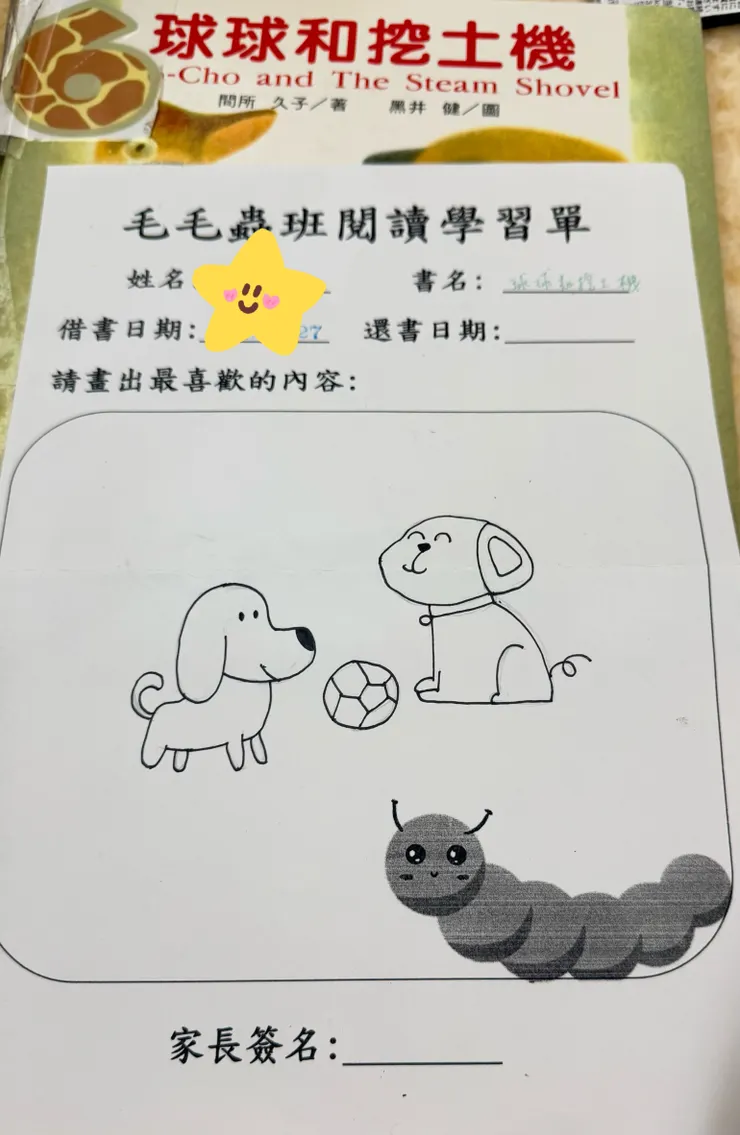 球球和挖土機
-Cho and The Steam Shovel
間所 久子／著 黑井 健／圖
毛毛蟲班閱讀學習單
姓名 書名：球球和挖土機
借書日期： 27 還書日期：
請畫出最喜歡的內容：
家長簽名：